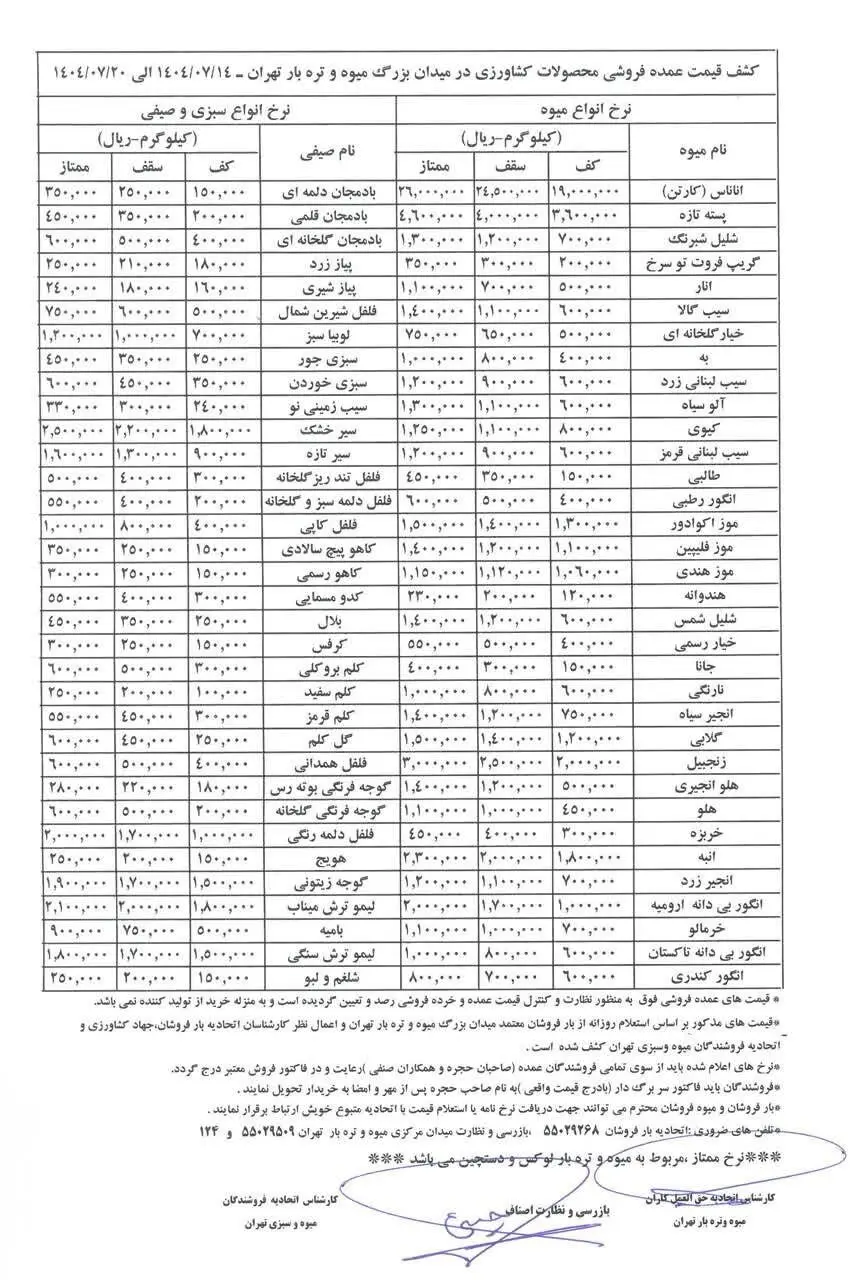 کشف قیمت عمده فروشی محصولات کشاورزی در میدان بزرگ میوه و تره بار تهران ــ ۱۴۰۴/۰۷/۱۴ الی ۱۴۰۴/۰۷/۲۰
نرخ انواع میوه نرخ انواع سبزی و صیفی
نام میوه (کیلوگرم-ریال) نام صیفی (کیلوگرم-ریال)
کف سقف ممتاز کف سقف ممتاز
اناناس (کارتن) ۱۹,۰۰۰,۰۰۰ ۲۴,۵۰۰,۰۰۰ ۲۶,۰۰۰,۰۰۰ بادمجان دلمه ای ۱۵۰,۰۰۰ ۲۵۰,۰۰۰ ۳۵۰,۰۰۰
پسته تازه ۳,۶۰۰,۰۰۰ ۴,۰۰۰,۰۰۰ ۴,۶۰۰,۰۰۰ بادمجان قلمی ۲۰۰,۰۰۰ ۳۵۰,۰۰۰ ۴۵۰,۰۰۰
شلیل شبرنگ ۷۰۰,۰۰۰ ۱,۲۰۰,۰۰۰ ۱,۳۰۰,۰۰۰ بادمجان گلخانه ای ۴۰۰,۰۰۰ ۵۰۰,۰۰۰ ۶۰۰,۰۰۰
گریپ فروت تو سرخ ۲۰۰,۰۰۰ ۳۰۰,۰۰۰ ۳۵۰,۰۰۰ پیاز زرد ۱۸۰,۰۰۰ ۲۱۰,۰۰۰ ۲۵۰,۰۰۰
انار ۵۰۰,۰۰۰ ۷۰۰,۰۰۰ ۱,۱۰۰,۰۰۰ پیاز شیری ۱۶۰,۰۰۰ ۱۸۰,۰۰۰ ۲۴۰,۰۰۰
سیب گالا ۶۰۰,۰۰۰ ۱,۱۰۰,۰۰۰ ۱,۴۰۰,۰۰۰ فلفل شیرین شمال ۵۰۰,۰۰۰ ۶۰۰,۰۰۰ ۷۵۰,۰۰۰
خیارگلخانه ای ۵۰۰,۰۰۰ ۶۵۰,۰۰۰ ۷۵۰,۰۰۰ لوبیا سبز ۷۰۰,۰۰۰ ۱,۰۰۰,۰۰۰ ۱,۲۰۰,۰۰۰
به ۴۰۰,۰۰۰ ۸۰۰,۰۰۰ ۱,۰۰۰,۰۰۰ سبزی جور ۲۵۰,۰۰۰ ۳۵۰,۰۰۰ ۴۵۰,۰۰۰
سیب لبنانی زرد ۶۰۰,۰۰۰ ۹۰۰,۰۰۰ ۱,۲۰۰,۰۰۰ سبزی خوردن ۳۵۰,۰۰۰ ۴۵۰,۰۰۰ ۶۰۰,۰۰۰
آلو سیاه ۶۰۰,۰۰۰ ۱,۱۰۰,۰۰۰ ۱,۳۰۰,۰۰۰ سیب زمینی نو ۲۴۰,۰۰۰ ۳۰۰,۰۰۰ ۳۳۰,۰۰۰
کیوی ۸۰۰,۰۰۰ ۱,۱۰۰,۰۰۰ ۱,۲۵۰,۰۰۰ سیر خشک ۱,۸۰۰,۰۰۰ ۲,۲۰۰,۰۰۰ ۲,۵۰۰,۰۰۰
سیب لبنانی قرمز ۶۰۰,۰۰۰ ۹۰۰,۰۰۰ ۱,۲۰۰,۰۰۰ سیر تازه ۹۰۰,۰۰۰ ۱,۳۰۰,۰۰۰ ۱,۶۰۰,۰۰۰
طالبی ۱۵۰,۰۰۰ ۳۵۰,۰۰۰ ۴۵۰,۰۰۰ فلفل تند ریزگلخانه ۳۰۰,۰۰۰ ۴۰۰,۰۰۰ ۵۰۰,۰۰۰
انگور رطبی ۴۰۰,۰۰۰ ۵۰۰,۰۰۰ ۶۰۰,۰۰۰ فلفل دلمه سبز و گلخانه ۲۰۰,۰۰۰ ۴۰۰,۰۰۰ ۵۵۰,۰۰۰
موز اکوادور ۱,۳۰۰,۰۰۰ ۱,۴۰۰,۰۰۰ ۱,۵۰۰,۰۰۰ فلفل کاپی ۴۰۰,۰۰۰ ۸۰۰,۰۰۰ ۱,۰۰۰,۰۰۰
موز فلیپین ۱,۱۰۰,۰۰۰ ۱,۲۰۰,۰۰۰ ۱,۴۰۰,۰۰۰ کاهو پیچ سالادی ۱۵۰,۰۰۰ ۲۵۰,۰۰۰ ۳۵۰,۰۰۰
موز هندی ۱,۰۶۰,۰۰۰ ۱,۱۲۰,۰۰۰ ۱,۱۵۰,۰۰۰ کاهو رسمی ۱۵۰,۰۰۰ ۲۵۰,۰۰۰ ۳۰۰,۰۰۰
هندوانه ۱۲۰,۰۰۰ ۲۰۰,۰۰۰ ۲۳۰,۰۰۰ کدو مسمایی ۳۰۰,۰۰۰ ۴۰۰,۰۰۰ ۵۵۰,۰۰۰
شلیل شمس ۶۰۰,۰۰۰ ۱,۲۰۰,۰۰۰ ۱,۴۰۰,۰۰۰ بلال ۲۵۰,۰۰۰ ۳۵۰,۰۰۰ ۴۵۰,۰۰۰
خیار رسمی ۴۰۰,۰۰۰ ۵۰۰,۰۰۰ ۵۵۰,۰۰۰ کرفس ۱۵۰,۰۰۰ ۲۵۰,۰۰۰ ۳۰۰,۰۰۰
جانا ۱۵۰,۰۰۰ ۳۰۰,۰۰۰ ۴۰۰,۰۰۰ کلم بروکلی ۳۰۰,۰۰۰ ۵۰۰,۰۰۰ ۶۰۰,۰۰۰
نارنگی ۶۰۰,۰۰۰ ۸۰۰,۰۰۰ ۱,۰۰۰,۰۰۰ کلم سفید ۱۰۰,۰۰۰ ۲۰۰,۰۰۰ ۲۵۰,۰۰۰
انجیر سیاه ۷۵۰,۰۰۰ ۱,۲۰۰,۰۰۰ ۱,۴۰۰,۰۰۰ کلم قرمز ۳۰۰,۰۰۰ ۴۵۰,۰۰۰ ۵۵۰,۰۰۰
گلابی ۱,۲۰۰,۰۰۰ ۱,۴۰۰,۰۰۰ ۱,۵۰۰,۰۰۰ گل کلم ۲۵۰,۰۰۰ ۴۵۰,۰۰۰ ۶۰۰,۰۰۰
زنجبیل ۲,۰۰۰,۰۰۰ ۲,۵۰۰,۰۰۰ ۳,۰۰۰,۰۰۰ فلفل همدانی ۴۰۰,۰۰۰ ۵۰۰,۰۰۰ ۶۰۰,۰۰۰
هلو انجیری ۵۰۰,۰۰۰ ۱,۲۰۰,۰۰۰ ۱,۴۰۰,۰۰۰ گوجه فرنگی بوته رس ۱۸۰,۰۰۰ ۲۲۰,۰۰۰ ۲۸۰,۰۰۰
هلو ۴۵۰,۰۰۰ ۱,۰۰۰,۰۰۰ ۱,۱۰۰,۰۰۰ گوجه فرنگی گلخانه ۲۰۰,۰۰۰ ۵۰۰,۰۰۰ ۶۰۰,۰۰۰
خربزه ۳۰۰,۰۰۰ ۴۰۰,۰۰۰ ۴۵۰,۰۰۰ فلفل دلمه رنگی ۱,۰۰۰,۰۰۰ ۱,۷۰۰,۰۰۰ ۲,۰۰۰,۰۰۰
انبه ۱,۸۰۰,۰۰۰ ۲,۰۰۰,۰۰۰ ۲,۳۰۰,۰۰۰ هویج ۱۵۰,۰۰۰ ۲۰۰,۰۰۰ ۲۵۰,۰۰۰
انجیر زرد ۷۰۰,۰۰۰ ۱,۱۰۰,۰۰۰ ۱,۲۰۰,۰۰۰ گوجه زیتونی ۱,۵۰۰,۰۰۰ ۱,۷۰۰,۰۰۰ ۱,۹۰۰,۰۰۰
انگور بی دانه ارومیه ۱,۰۰۰,۰۰۰ ۱,۷۰۰,۰۰۰ ۲,۰۰۰,۰۰۰ لیمو ترش میناب ۱,۸۰۰,۰۰۰ ۲,۰۰۰,۰۰۰ ۲,۱۰۰,۰۰۰
خرمالو ۷۰۰,۰۰۰ ۱,۰۰۰,۰۰۰ ۱,۱۰۰,۰۰۰ بامیه ۵۰۰,۰۰۰ ۷۵۰,۰۰۰ ۹۰۰,۰۰۰
انگور بی دانه تاکستان ۶۰۰,۰۰۰ ۸۰۰,۰۰۰ ۱,۰۰۰,۰۰۰ لیمو ترش سنگی ۱,۵۰۰,۰۰۰ ۱,۷۰۰,۰۰۰ ۱,۸۰۰,۰۰۰
انگور کندری ۶۰۰,۰۰۰ ۷۰۰,۰۰۰ ۸۰۰,۰۰۰ شلغم و لبو ۱۵۰,۰۰۰ ۲۰۰,۰۰۰ ۲۵۰,۰۰۰
* قیمت های عمده فروشی فوق به منظور نظارت و کنترل قیمت عمده و خرده فروشی رصد و تعیین گردیده است و به منزله خرید از تولید کننده نمی باشد.
*قیمت های مذکور بر اساس استعلام روزانه از بار فروشان معتمد میدان بزرگ میوه و تره بار تهران و اعمال نظر کارشناسان اتحادیه بار فروشان،جهاد کشاورزی و
اتحادیه فروشندگان میوه وسبزی تهران کشف شده است .
*نرخ های اعلام شده باید از سوی تمامی فروشندگان عمده (صاحبان حجره و همکاران صنفی )رعایت و در فاکتور فروش معتبر درج گردد.
*فروشندگان باید فاکتور سر برگ دار (بادرج قیمت واقعی )به نام صاحب حجره پس از مهر و امضا به خریدار تحویل نمایند .
*بار فروشان و میوه فروشان محترم می توانند جهت دریافت نرخ نامه یا استعلام قیمت با اتحادیه متبوع خویش ارتباط برقرار نمایند .
*تلفن های ضروری :اتحادیه بار فروشان ۵۵۰۲۹۲۶۸ ،بازرسی و نظارت میدان مرکزی میوه و تره بار تهران ۵۵۰۲۹۵۰۹ و ۱۲۴
***نرخ ممتاز ،مربوط به میوه و تره بار لوکس و دستچین می باشد ***
کارشناس اتحادیه حق العمل کاران بازرسی و نظارت اصناف کارشناس اتحادیه فروشندگان
میوه وتره بار تهران میوه و سبزی تهران